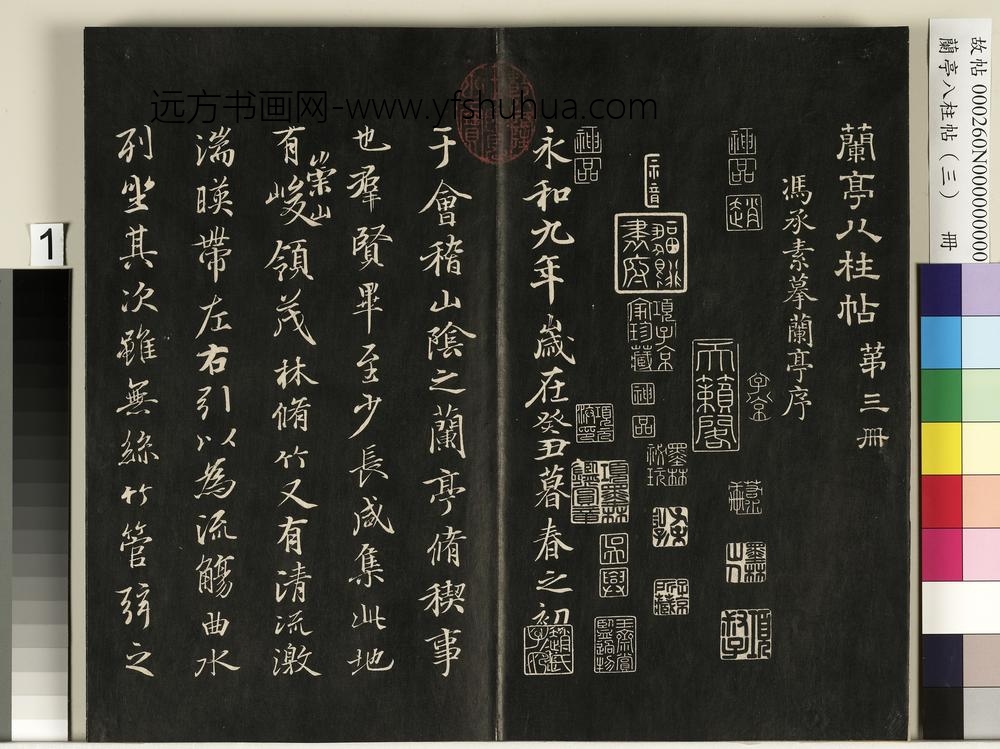 蘭亭八柱帖 第三冊
馮承素摹蘭亭序
神品
趙
子京
天籟閣
墨林
項
神品
永和九年歲在癸丑暮春之初會
于會稽山陰之蘭亭脩稧事
也羣賢畢至少長咸集此地
有崇山峻領茂林脩竹又有清流激
湍暎帶左右引以為流觴曲水
列坐其次雖無絲竹管弦之
远方书画网-www.yfshuhua.com
故帖 000260N000000000
蘭亭八柱帖（三） 冊
1